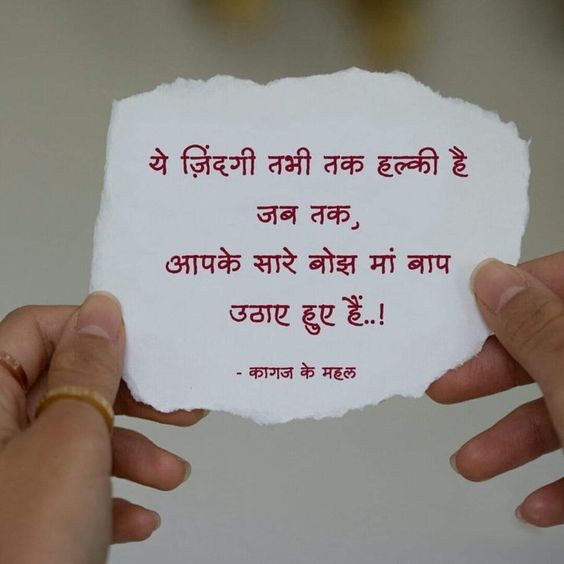 ये ज़िंदगी तभी तक हल्की है
जब तक,
आपके सारे बोझ मां बाप
उठाए हुए हैं..!
- कागज के महल